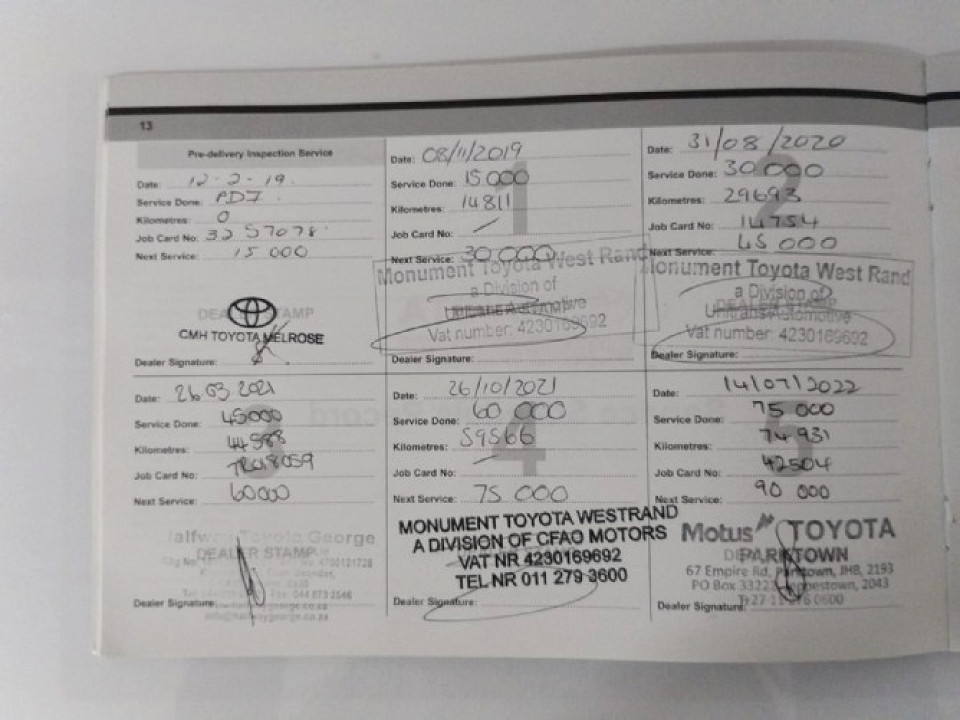 13
Pre-delivery Inspection Service
Date: 12-2-19.
Service Done: PDI
Kilometres: 0
Job Card No: 3257078
Next Service: 15 000
DEALER STAMP
CMH TOYOTA MELROSE
Dealer Signature:
1
Date: 08/11/2019
Service Done: 15000
Kilometres: 14811
Job Card No: /
Next Service: 30.000
Monument Toyota West Rand
a Division of
Unitrans Automotive
Vat number: 4230169692
Dealer Signature:
2
Date: 31/08/2020
Service Done: 30 000
Kilometres: 29693
Job Card No: 14754
Next Service: 45 000
Monument Toyota West Rand
a Division of
DEALER STAMP
Unitrans Automotive
Vat number: 4230169692
Dealer Signature:
3
Date: 26.03.2021
Service Done: 45000
Kilometres: 44988
Job Card No:
Next Service: 60000
Halfway Toyota George
DEALER STAMP
Dealer Signature:
4
Date: 26/10/2021
Service Done: 60 000
Kilometres: 59566
Job Card No:
Next Service: 75 000
MONUMENT TOYOTA WESTRAND
A DIVISION OF CFAO MOTORS
VAT NR 4230169692
TEL NR 011 279 3600
Dealer Signature:
5
Date: 14/07/2022
Service Done: 75 000
Kilometres: 74931
Job Card No: 42504
Next Service: 90 000
Motus TOYOTA
PARKTOWN
67 Empire Rd, Parktown, JHB, 2193
PO Box 33222, Jeppestown, 2043
Dealer Signature: